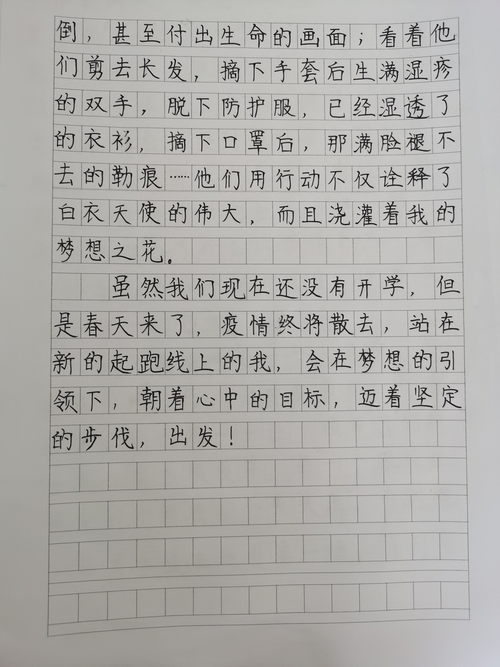 倒，甚至付出生命的画面；看着他
们剪去长发，摘下手套后生满湿疹
的双手，脱下防护服，已经湿透了
的衣衫，摘下口罩后，那满脸褪不
去的勒痕……他们用行动不仅诠释了
白衣天使的伟大，而且浇灌着我的
梦想之花。
虽然我们现在还没有开学，但
是春天来了，疫情终将散去，站在
新的起跑线上的我，会在梦想的引
领下，朝着心中的目标，迈着坚定
的步伐，出发！